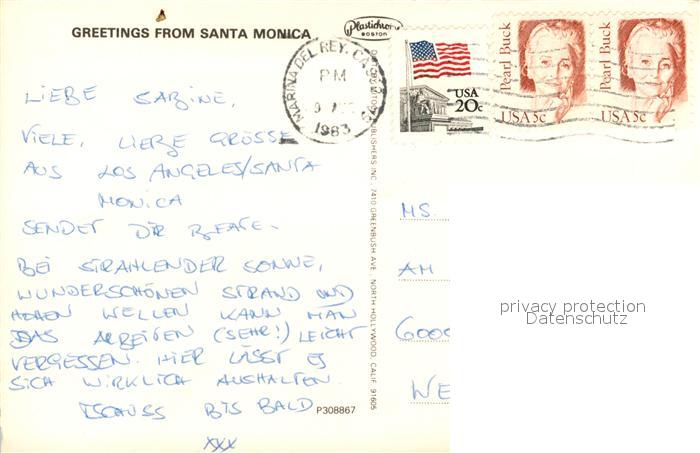 GREETINGS FROM SANTA MONICA
Plastichrome
BOSTON
MARINA DEL REY, CA
PM
1983
USA
20c
Pearl Buck
USA 5c
Pearl Buck
USA 5c
LIEBE SABINE,
VIELE, LIEBE GRÜSSE
AUS LOS ANGELES/SANTA
MONICA
SENDET DIR BEATE.
BEI STRAHLENDER SONNE,
WUNDERSCHÖNEN STRAND UND
HOHEN WELLEN KANN MAN
DAS ARBEITEN (SEHR!) LEICHT
VERGESSEN. HIER LÄSST ES
SICH WIRKLICH AUSHALTEN.
TSCHÜSS BIS BALD
XXX
P308867
PUBLISHERS INC. 7410 GREENBUSH AVE., NORTH HOLLYWOOD, CALIF. 91605
MS.
AM
WE
privacy protection
Datenschutz